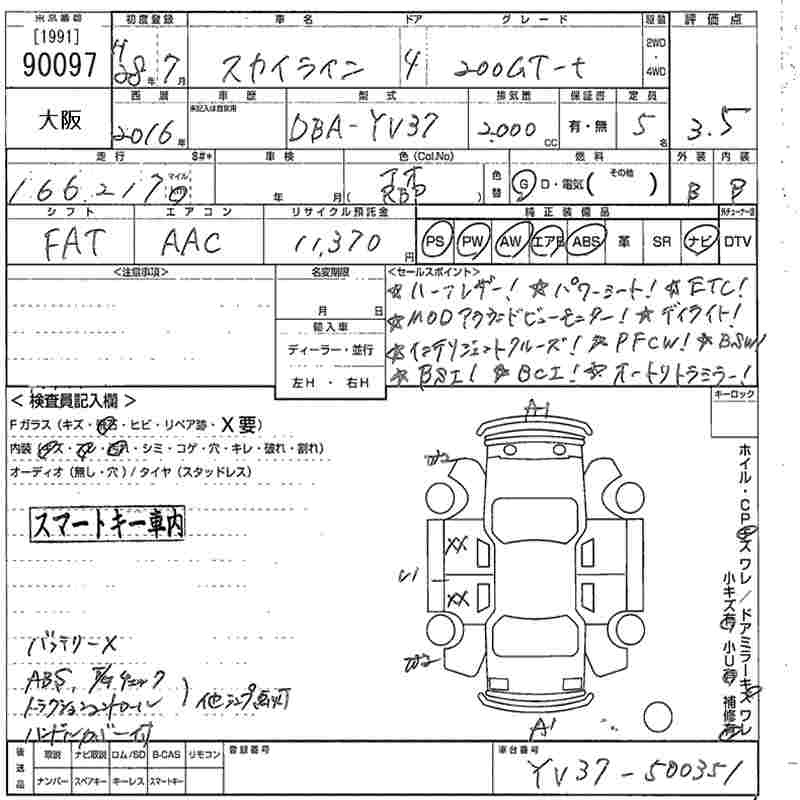 出品番号 初度登録 車名 ドア グレード 駆動 評価点
[1991]
90097
H28年7月 スカイライン 4 200GT-t 2WD・4WD 3.5
大阪
西暦 車歴 型式 排気量 保証書 定員
未記入は自家用
2016年 DBA-YV37 2000CC 有・無 5名
走行 $#* 車検 色(Col.No) 色替 燃料 外装 内装
166,217 マイル 年 月 ( RBP ) G D・電気( その他 ) B B
シフト エアコン リサイクル預託金 純正装備品
FAT AAC 11,370円 PS PW AW エアB ABS 革 SR ナビ DTV
<注意事項> 名変期限 <セールスポイント>
月 日
輸入車
ディーラー・並行
左H・右H
☆ハーフレザー! ☆パワーシート! ☆ETC!
☆MODアラウンドビューモニター! ☆デイライト!
☆インテリジェントクルーズ! ☆PFCW! ☆BSW!
☆BSI! ☆BCI! ☆オートリトラミラー!
キーロック
<検査員記入欄>
Fガラス(キズ・飛石・ヒビ・リペア跡・X要)
内装(キズ・スレ・汚れ・シミ・コゲ・穴・キレ・破れ・割れ)
オーディオ(無し・穴)/タイヤ(スタッドレス)
スマートキー車内
A1
XX
XX
A1
ホイル・CPキズワレ/ドアミラーキズワレ
小キズ有 小U有 補修有
バッテリーX
ABS
トラクションコントロール
ハンドルカバー付
後送品 取説 ナビ取説 ロム/SD B-CAS リモコン 登録番号 車台番号
ナンバー スペアキー キーレス スマートキー
YV37-500351